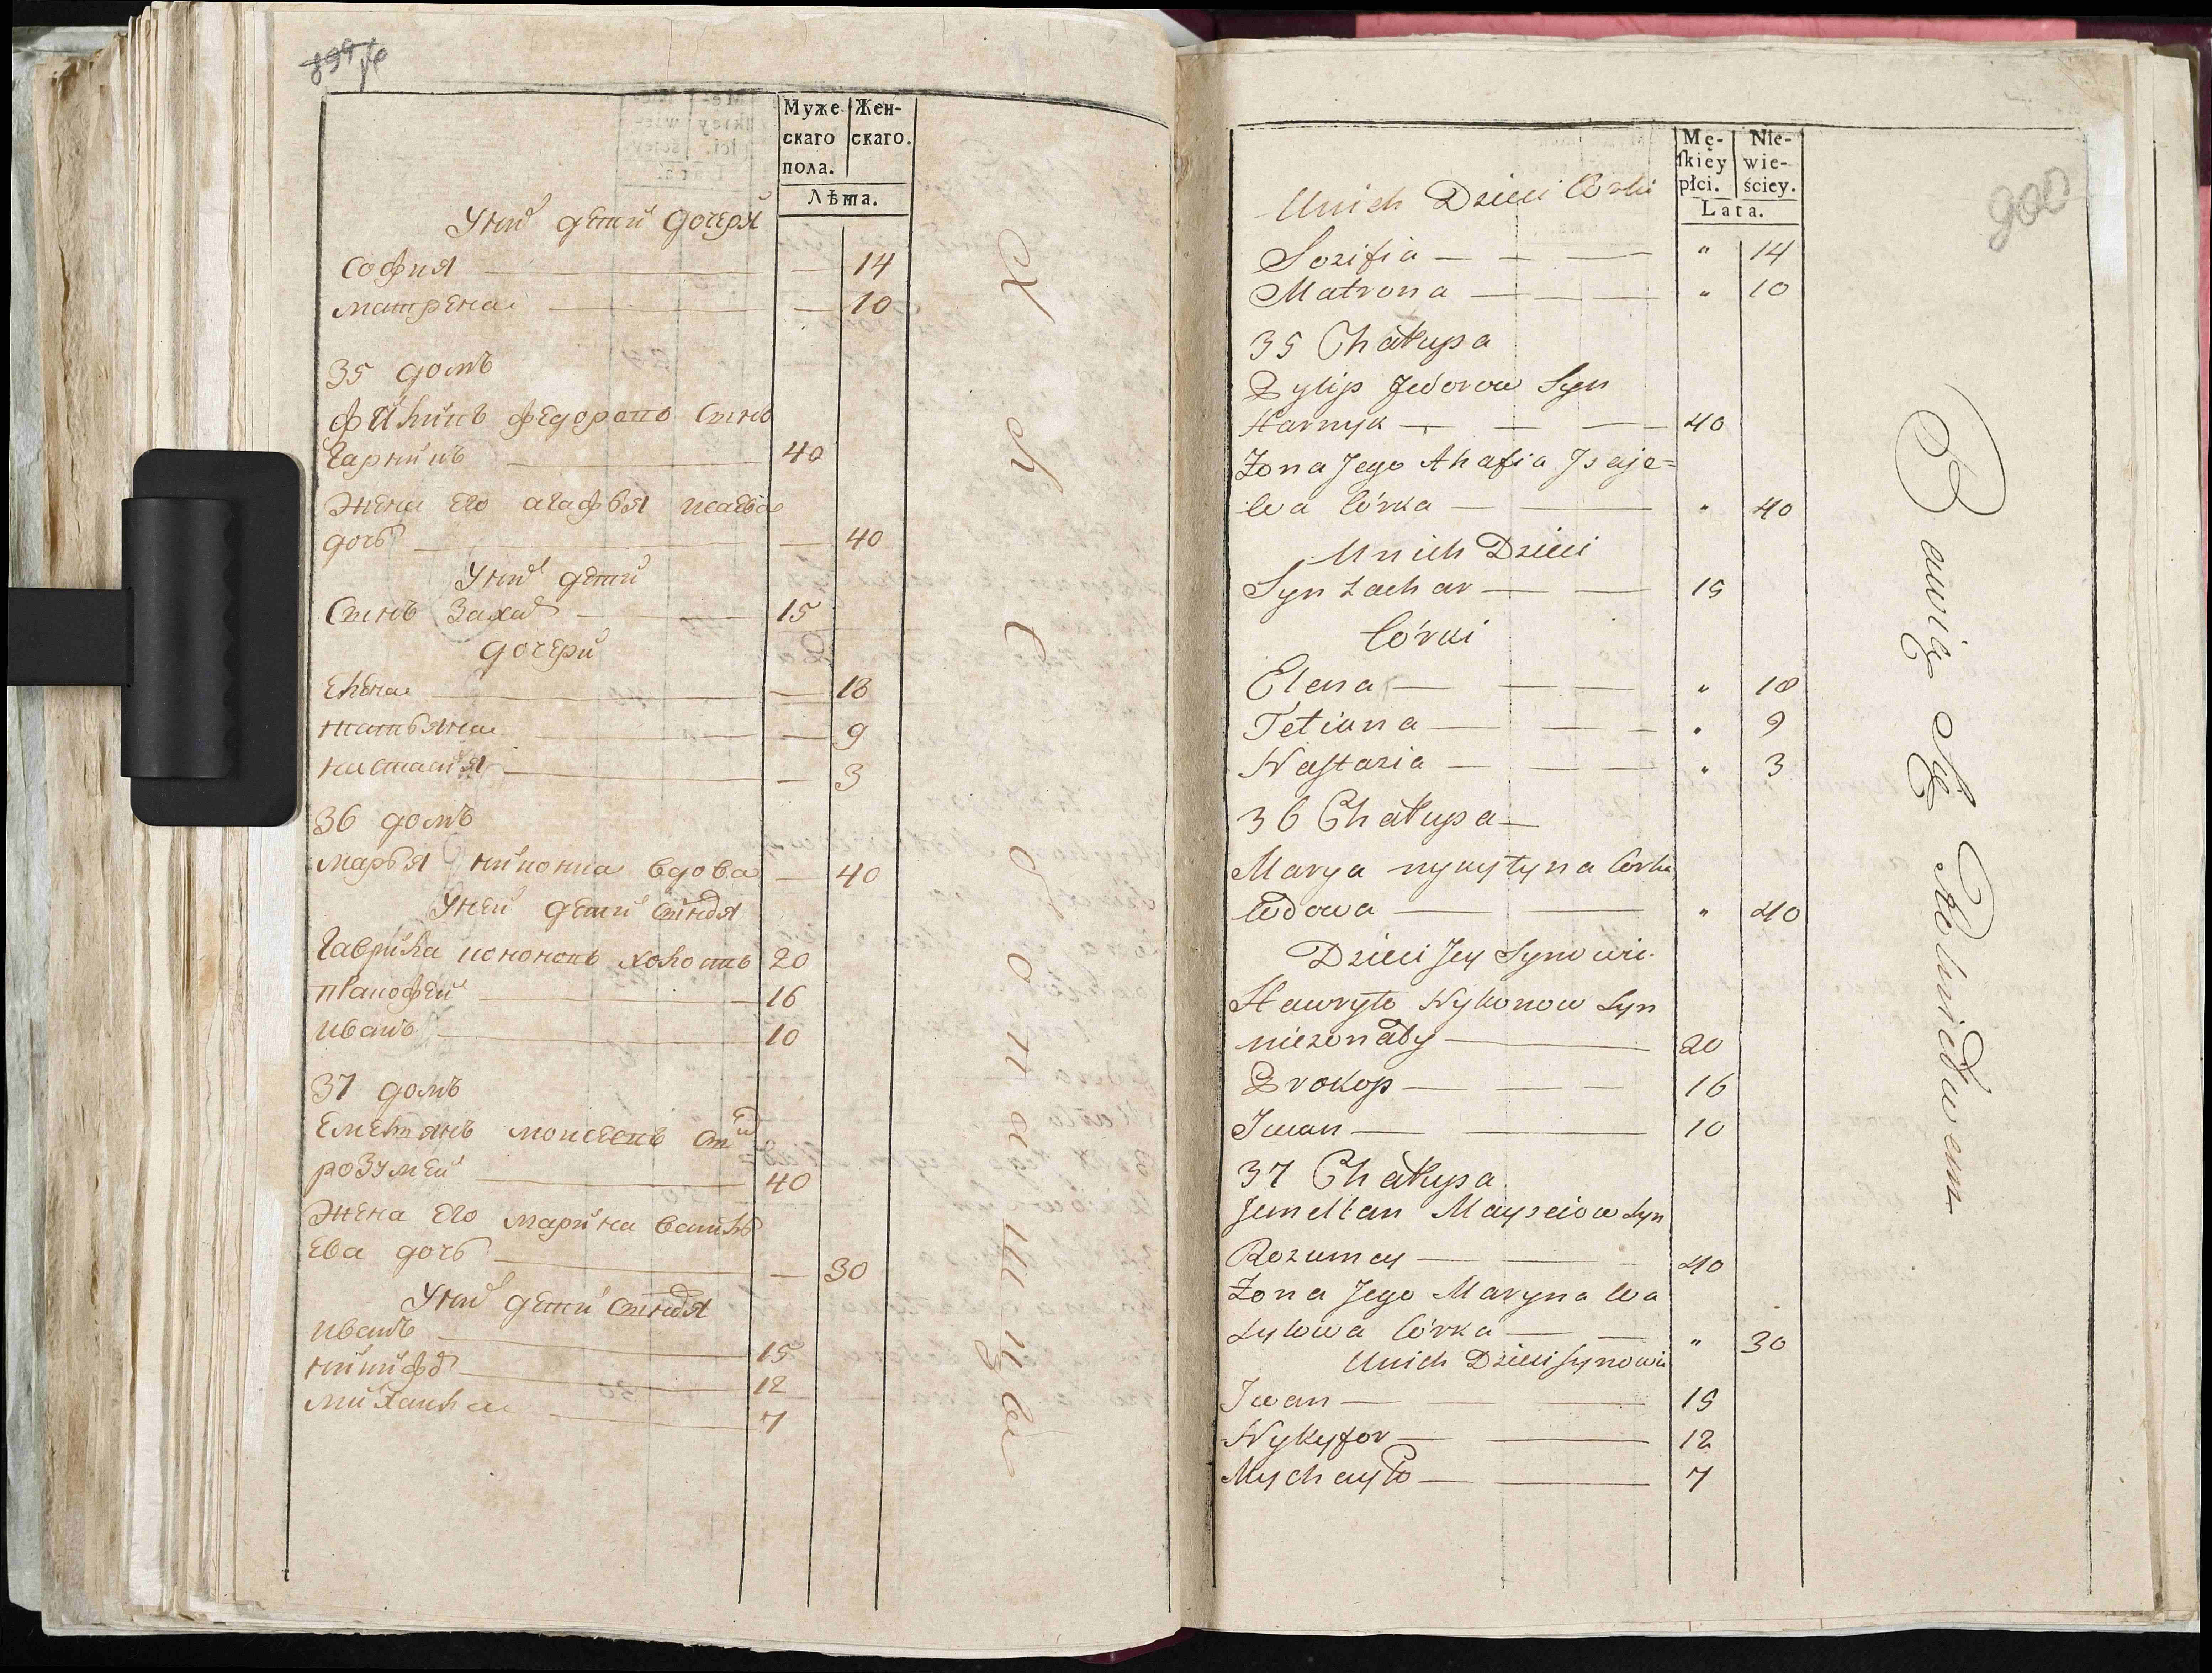 Муже
скаго
пола.
Жен-
скаго.
Лѣта.
У них дѣти дочери
София — 14
Матрена — 10
35 домъ
Филипъ Федоровъ Сынъ
Гарникъ — 40
Жена Его агафья исаева
дочь — 40
У них дѣти
Сынъ Захар — 15
дочери
Елена — 18
татьяна — 9
настасия — 3
36 домъ
марья вдова — 40
У ней дѣти сыновя
Гаврила холостъ 20
16
Иванъ — 10
37 домъ
Емельянъ
розумей — 40
Жена Его марина васил
Ева дочь — 30
У них дѣти сыновя
Иванъ — 15
никифор — 12
михаила — 7
900
Mę-
skiey
płci.
Nie-
wie-
ściey.
Lata.
Unich Dzieci Corki
Sozifia — " 14
Matrona — " 10
35 Chałupa
Pylip Fedorow Syn
Harnyk — 40
Żona Jego Ahafia Jsaje=
wa Córka — " 40
Unich Dzieci
Syn Zachar — 15
Córki
Elena — " 18
Tetiana — " 9
Nastazia — " 3
36 Chałupa —
Marya nykytyna Corka
Wdowa — " 40
Dzieci Jey Synowie
Hawryło Nykonow Syn
niezonaty — 20
Prokop — 16
Iwan — 10
37 Chałupa
Jemelian Mayseiow Syn
Rozumey — 40
Żona Jego Maryna Wa
sylowa Córka — " 30
Unich Dzieci synowie
Iwan — 15
Nykyfor — 12
Mychayło — 7
Bawią Się Rolnictwem